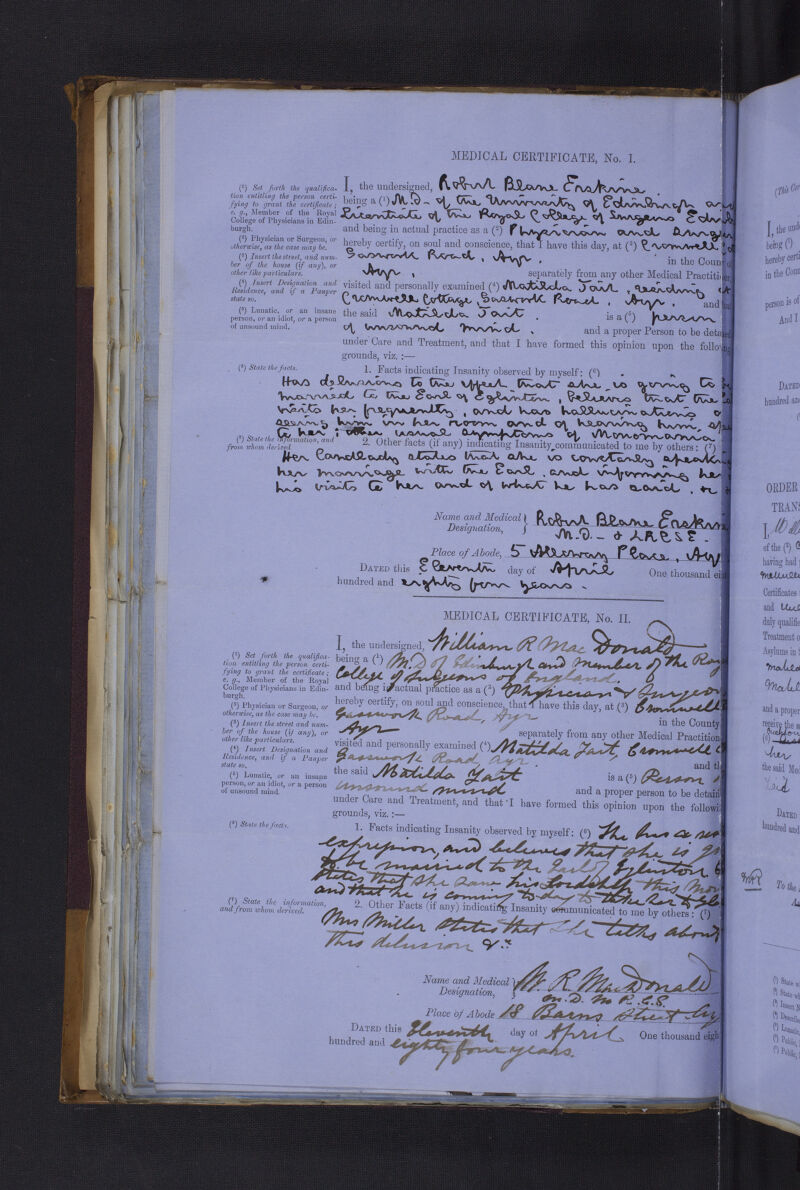 MEDICAL CERTIFICATE, No. I.
(¹) Set forth the qualifica-
tion entitling the person certi-
fying to grant the certificate;
e. g., Member of the Royal
College of Physicians in Edin-
burgh.
(²) Physician or Surgeon, or
otherwise, as the case may be.
(³) Insert the street, and num-
ber of the house (if any), or
other like particulars.
(⁴) Insert Designation and
Residence, and if a Pauper
state so.
(⁵) Lunatic, or an insane
person, or an idiot, or a person
of unsound mind.
I, the undersigned, Robert Blane Erskine
being a (¹) M.D. of the University of Edinburgh
Licentiate of the Royal College of Surgeons
and being in actual practice as a (²) Physician and
hereby certify, on soul and conscience, that I have this day, at (³) Cromwell
Gaswork Road, Ayr. in the
Ayr, separately from any other Medical
visited and personally examined (⁴) Matilda Tait, residing
Cromwell Cottage, Gaswork Road, Ayr. and
the said Matilda Tait. is a (⁵) person
of unsound mind. and a proper Person to be
under Care and Treatment, and that I have formed this opinion upon the
grounds, viz. :—
(⁶) State the facts.
1. Facts indicating Insanity observed by myself: (⁶)
Has delusions to the effect that she is going to
married to the Earl of Eglinton, believes that the
visits her frequently, and has hallucinations
seeing him in her room and of hearing him
to her; other usual symptoms of Monomania
(⁷) State the information, and
from whom derived.
2. Other facts (if any) indicating Insanity communicated to me by others: (⁷)
Her Landlady states that she is constantly
her marriage with the Earl, and informing
his visits to her and of what he has said, &c
Name and Medical
Designation, Robert Blane
M.D. & LRCSE.
Place of Abode, 5 Alloway Place, Ayr
DATED this Eleventh day of April One thousand
hundred and eighty four years.
MEDICAL CERTIFICATE, No. II.
(¹) Set forth the qualifica-
tion entitling the person certi-
fying to grant the certificate;
e. g., Member of the Royal
College of Physicians in Edin-
burgh.
(²) Physician or Surgeon, or
otherwise, as the case may be.
(³) Insert the street and num-
ber of the house (if any), or
other like particulars.
(⁴) Insert Designation and
Residence, and if a Pauper
state so.
(⁵) Lunatic, or an insane
person, or an idiot, or a person
of unsound mind.
I, the undersigned, William R MacDonald
being a (¹) M.D of Edinburgh and Member of the
College of Surgeons of England.
and being in actual practice as a (²) Physician & Surgeon
hereby certify, on soul and conscience, that I have this day, at (³) Cromwell
Gasswork Road, Ayr in the County
Ayr separately from any other Medical
visited and personally examined (⁴) Matilda Tait, Cromwell
Gasswork Road, Ayr. and
the said Matilda Tait is a (⁵) Person
unsound mind and a proper Person to be
under Care and Treatment, and that I have formed this opinion upon the
grounds, viz. :—
(⁶) State the facts.
1. Facts indicating Insanity observed by myself: (⁶) She has a
expression, and believes that she is
to be married to the Earl of Eglinton
States that she saw his Lordship this
and that he is coming to day to take her to
(⁷) State the information,
and from whom derived.
2. Other Facts (if any) indicating Insanity communicated to me by others: (⁷)
Mrs Miller states that she talks about
this delusion &c
Name and Medical
Designation, W. R. MacDonald
M.D. M R.C.S.
Place of Abode 18 Barns Street Ayr
DATED this Eleventh day of April One thousand
hundred and eighty four years.
I, the
being (¹)
hereby
in the
person is
And I
DATED
hundred
ORDER
I,
of the (²)
having had
Certificates
and
duly
Treatment
Asylums in
and a proper
receive the
her
the said
DATED
hundred and
To the